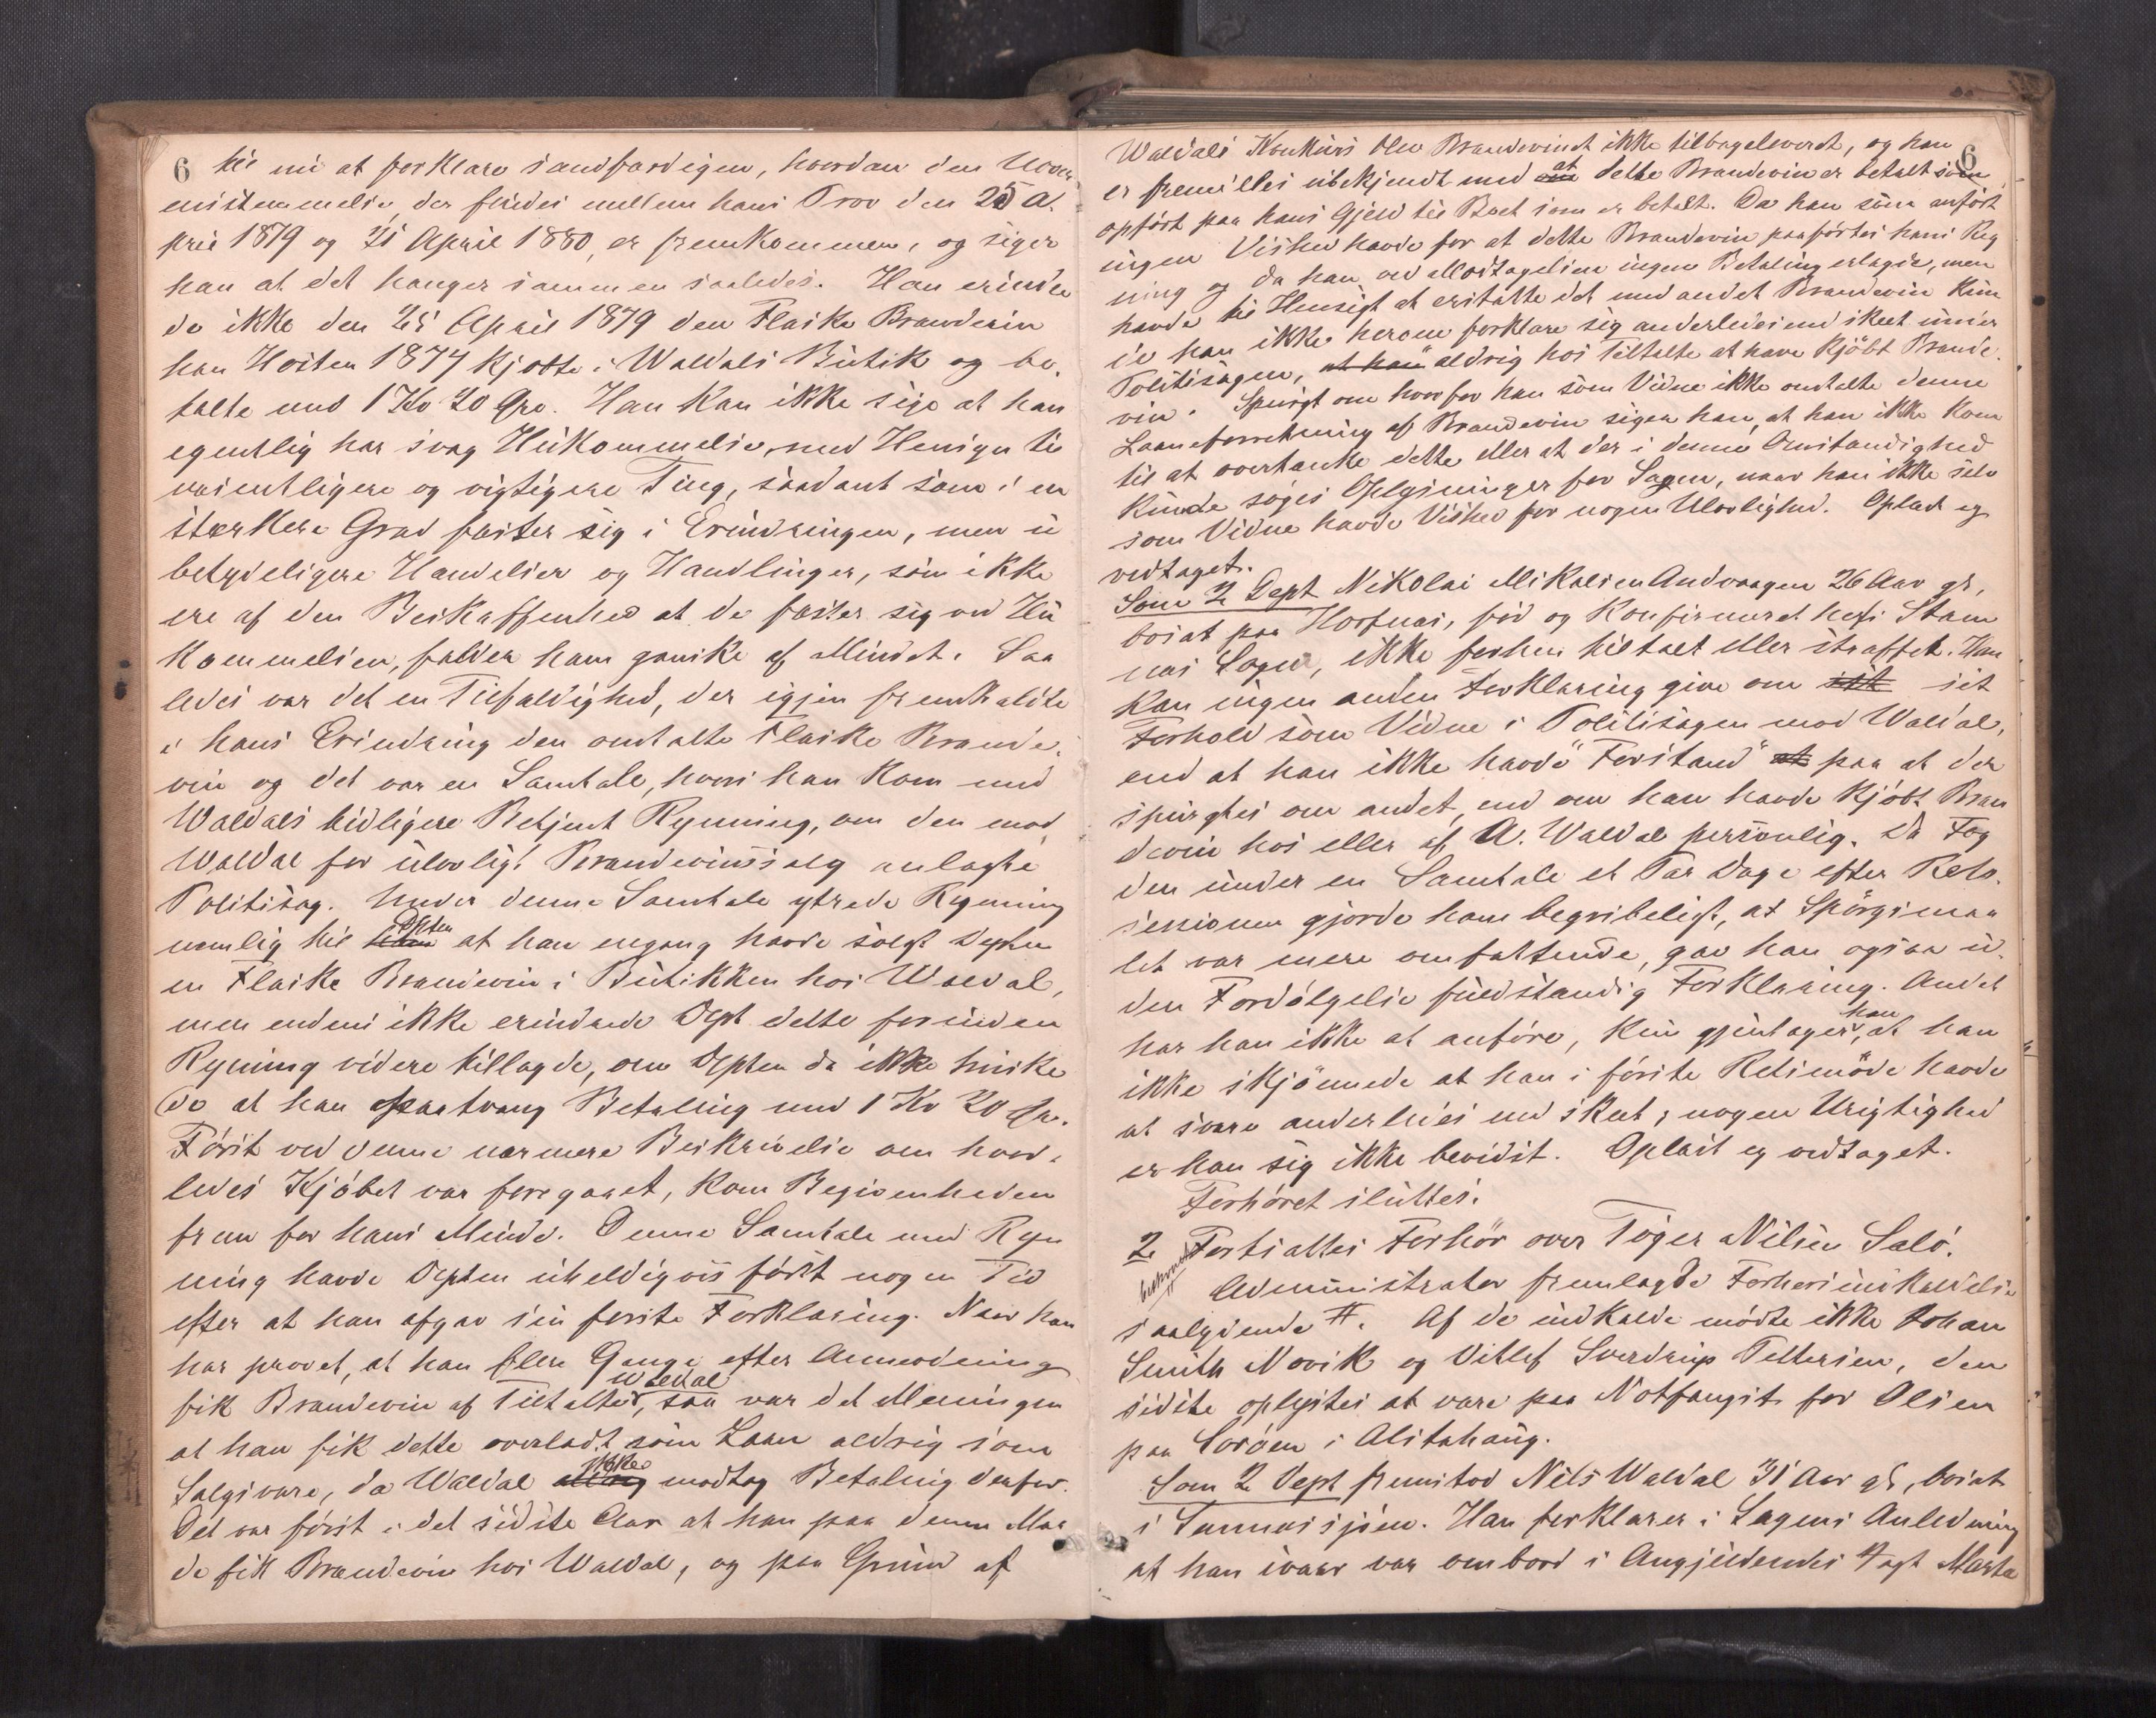 6 til nu at forklare sandfærdigen, hvordan den Uover
ensstemmelse, der findes mellem hans Prov den 25 A.
pril 1879 og 21 April 1880, er fremkommen, og siger
han at det hænger sammen saaledes. Han erindre
de ikke den 25 April 1879 den Flaske Brændevin
han Høsten 1877 kjøbte i Waldals Butik og be-
talte med 1 Kr 20 Øre. Han kan ikke sige at han
egentlig har svag Hukommelse, med Hensyn til
væsentligere og vigtigere Ting, saadant som i en
stærkere Grad fæster sig i Erindringen, men u
betydeligere Hændelser og Handlinger, som ikke
ere af den Beskaffenhed at de fæster sig ved Hu
kommelsen, falder ham ganske af Mindet. Saa
ledes var det en Tilfældighed, der igjen fremkaldte
i hans Erindring den omtalte Flaske Brænde-
vin og det var en Samtale, hvori han kom med
Waldals tidligere Betjent Rynning, om den mod
Waldal for ulovligt Brændevinssalg anlagte
Politisag. Under denne Samtale ytrede Rynning
nemlig til ham Depten at han engang havde solgt Depten
en Flaske Brændevin i Butikken hos Waldal,
men endnu ikke erindrede Dept dette forinden
Ryning videre tillagde, om Depten da ikke huske
de at han paatvang Betaling med 1 Kr 20 Øre.
Først ved denne nærmere Beskrivelse om hvor-
ledes Kjøbet var foregaaet, kom Begivenheden
frem for hans Minde. Denne Samtale med Ryn
ning havde Depten uheldigvis først nogen Tid
efter at han afgav sin første Forklaring. Naar han
har provet, at han flere Gange efter Anmodning
fik Brændevin af Tiltalte Waldal, saa var det Meningen
at han fik dette overladt som Laan aldrig som
Salgsvare, da Waldal aldrig ikke modtog Betaling derfor.
Det var først i det sidste Aar at han paa denne Maa
de fik Brændevin hos Waldal, og paa Grund af
6
Waldals Konkurs blev Brændevinet ikke tilbageleveret, og han
er fremdeles ubekjendt med om at dette Brændevin er betalt som
opført paa hans Gjeld til Boet som er betalt. Da han som anført
ingen Vished havde for at dette Brændevin paaførtes hans Reg
ning og da han ved Modtagelsen ingen Betaling erlagde, men
havde til Hensigt at erstatte det med andet Brændevin kun
de han ikke herom forklare sig anderledes end skeet under
Politisagen, at han aldrig hos Tiltalte at have kjøbt Brænde-
vin. Spurgt om hvorfor han som Vidne ikke omtalte denne
Laaneforretning af Brændevin siger han, at han ikke kom
til at overtænke dette eller at der i denne Omstændighed
kunde søges Oplysninger for Sagen, naar han ikke selv
som Vidne havde Vished for nogen Ulovlighed. Oplæst og
vedtaget.
Som 2 Dept Nikolai Mikalsen Andvaagen 26 Aar gl,
bosat paa Hovfnæs, fød og Konfirmeret heri Stam
næs Sogn, ikke forhen tiltalt eller straffet. Han
kan ingen anden Forklaring give om sit sit
Forhold som Vidne i Politisagen mod Waldal,
end at han ikke havde "Forstand" at paa at der
spurgtes om andet, end om han havde kjøbt Bræn
devin hos eller af A. Waldal personlig. Da Fog
den under en Samtale et Par Dage efter Rets-
sessionen gjorde ham begribeligt, at Spørgsmaa
let var mere omfattende, gav han ogsaa u-
den Fordølgelse fuldstændig Forklaring. Andet
har han ikke at anføre, kun gjentager han, at han
ikke skjønnede at han i første Retsmøde havde
at svare anderledes end skeet; nogen Urigtighed
er han sig ikke bevidst. Oplæst og vedtaget.
Forhøret sluttes.
2 Fortsattes Forhør over Tøger Nilsen Salø.
Administrator fremlagde Forhørsindkaldelse
saalydende #. Af de indkaldte mødte ikke Johan
Smith Novik og Ditlef Sverdrup Pettersen, den
sidste oplystes at være paa Notfangst for Olsen
paa Sørøen i Alstahaug.
Som 2 Dept fremstod Nils Waldal 31 Aar gl, bosat
i Sannæssjøen. Han forklarer i Sagens Anledning
at han ivaar var ombord i Angjældendes Jagt Marta